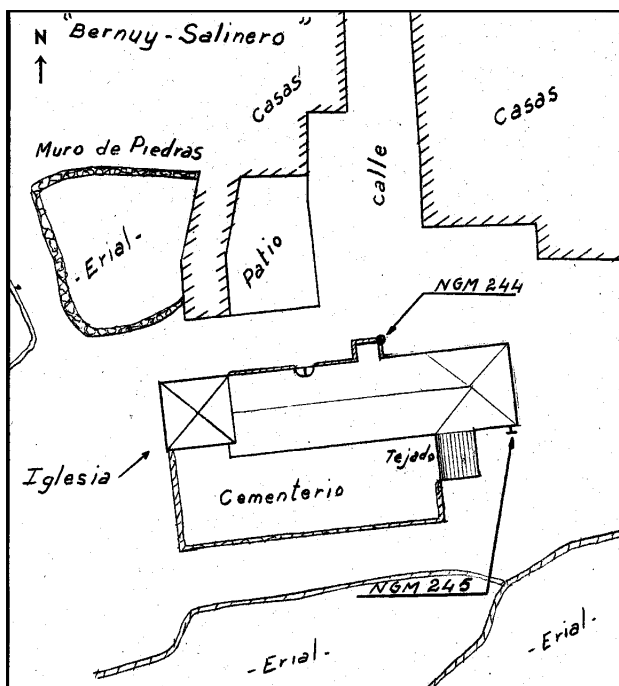 N
"Bernuy-Salinero"
Casas
Casas
Muro de Piedras
calle
-Erial-
Patio
NGM 244
Iglesia
Tejado
Cementerio
NGM 245
-Erial-
-Erial-